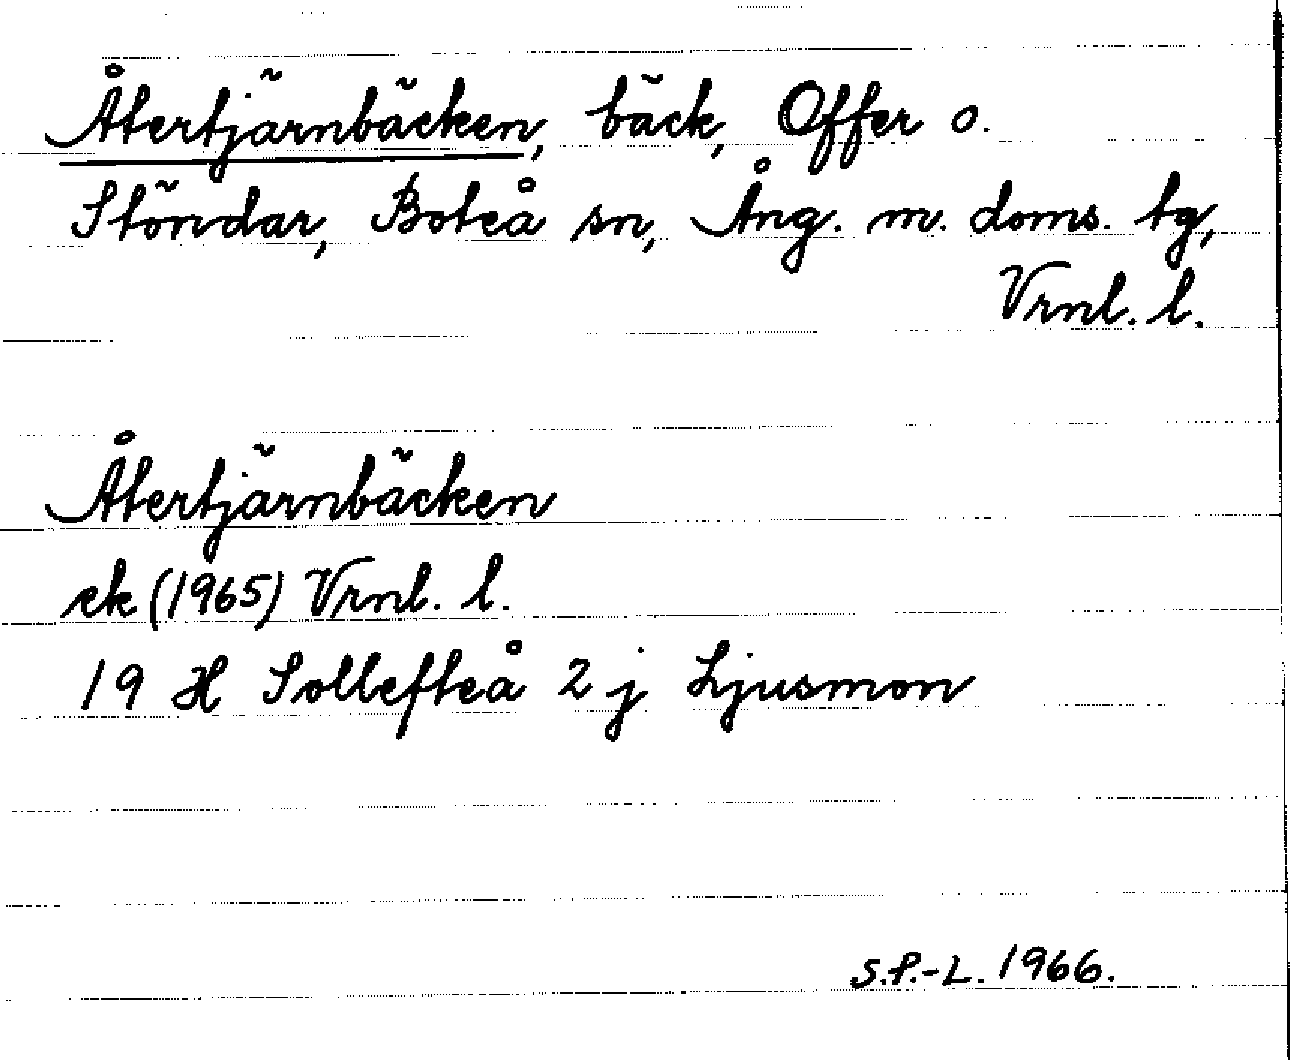 Återtjärnbäcken, bäck, Offer o.
Stöndar, Boteå sn, Ång. m. doms. tg,
Vrnl. l.
Återtjärnbäcken
ek (1965) Vrnl. l.
19 H Sollefteå 2 j Ljusmon
S.P.-L. 1966.